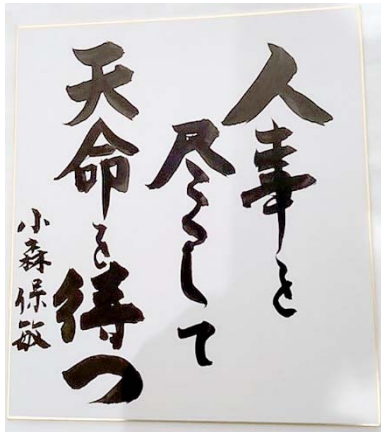 人事を
尽くして
天命を待つ
小森保敏